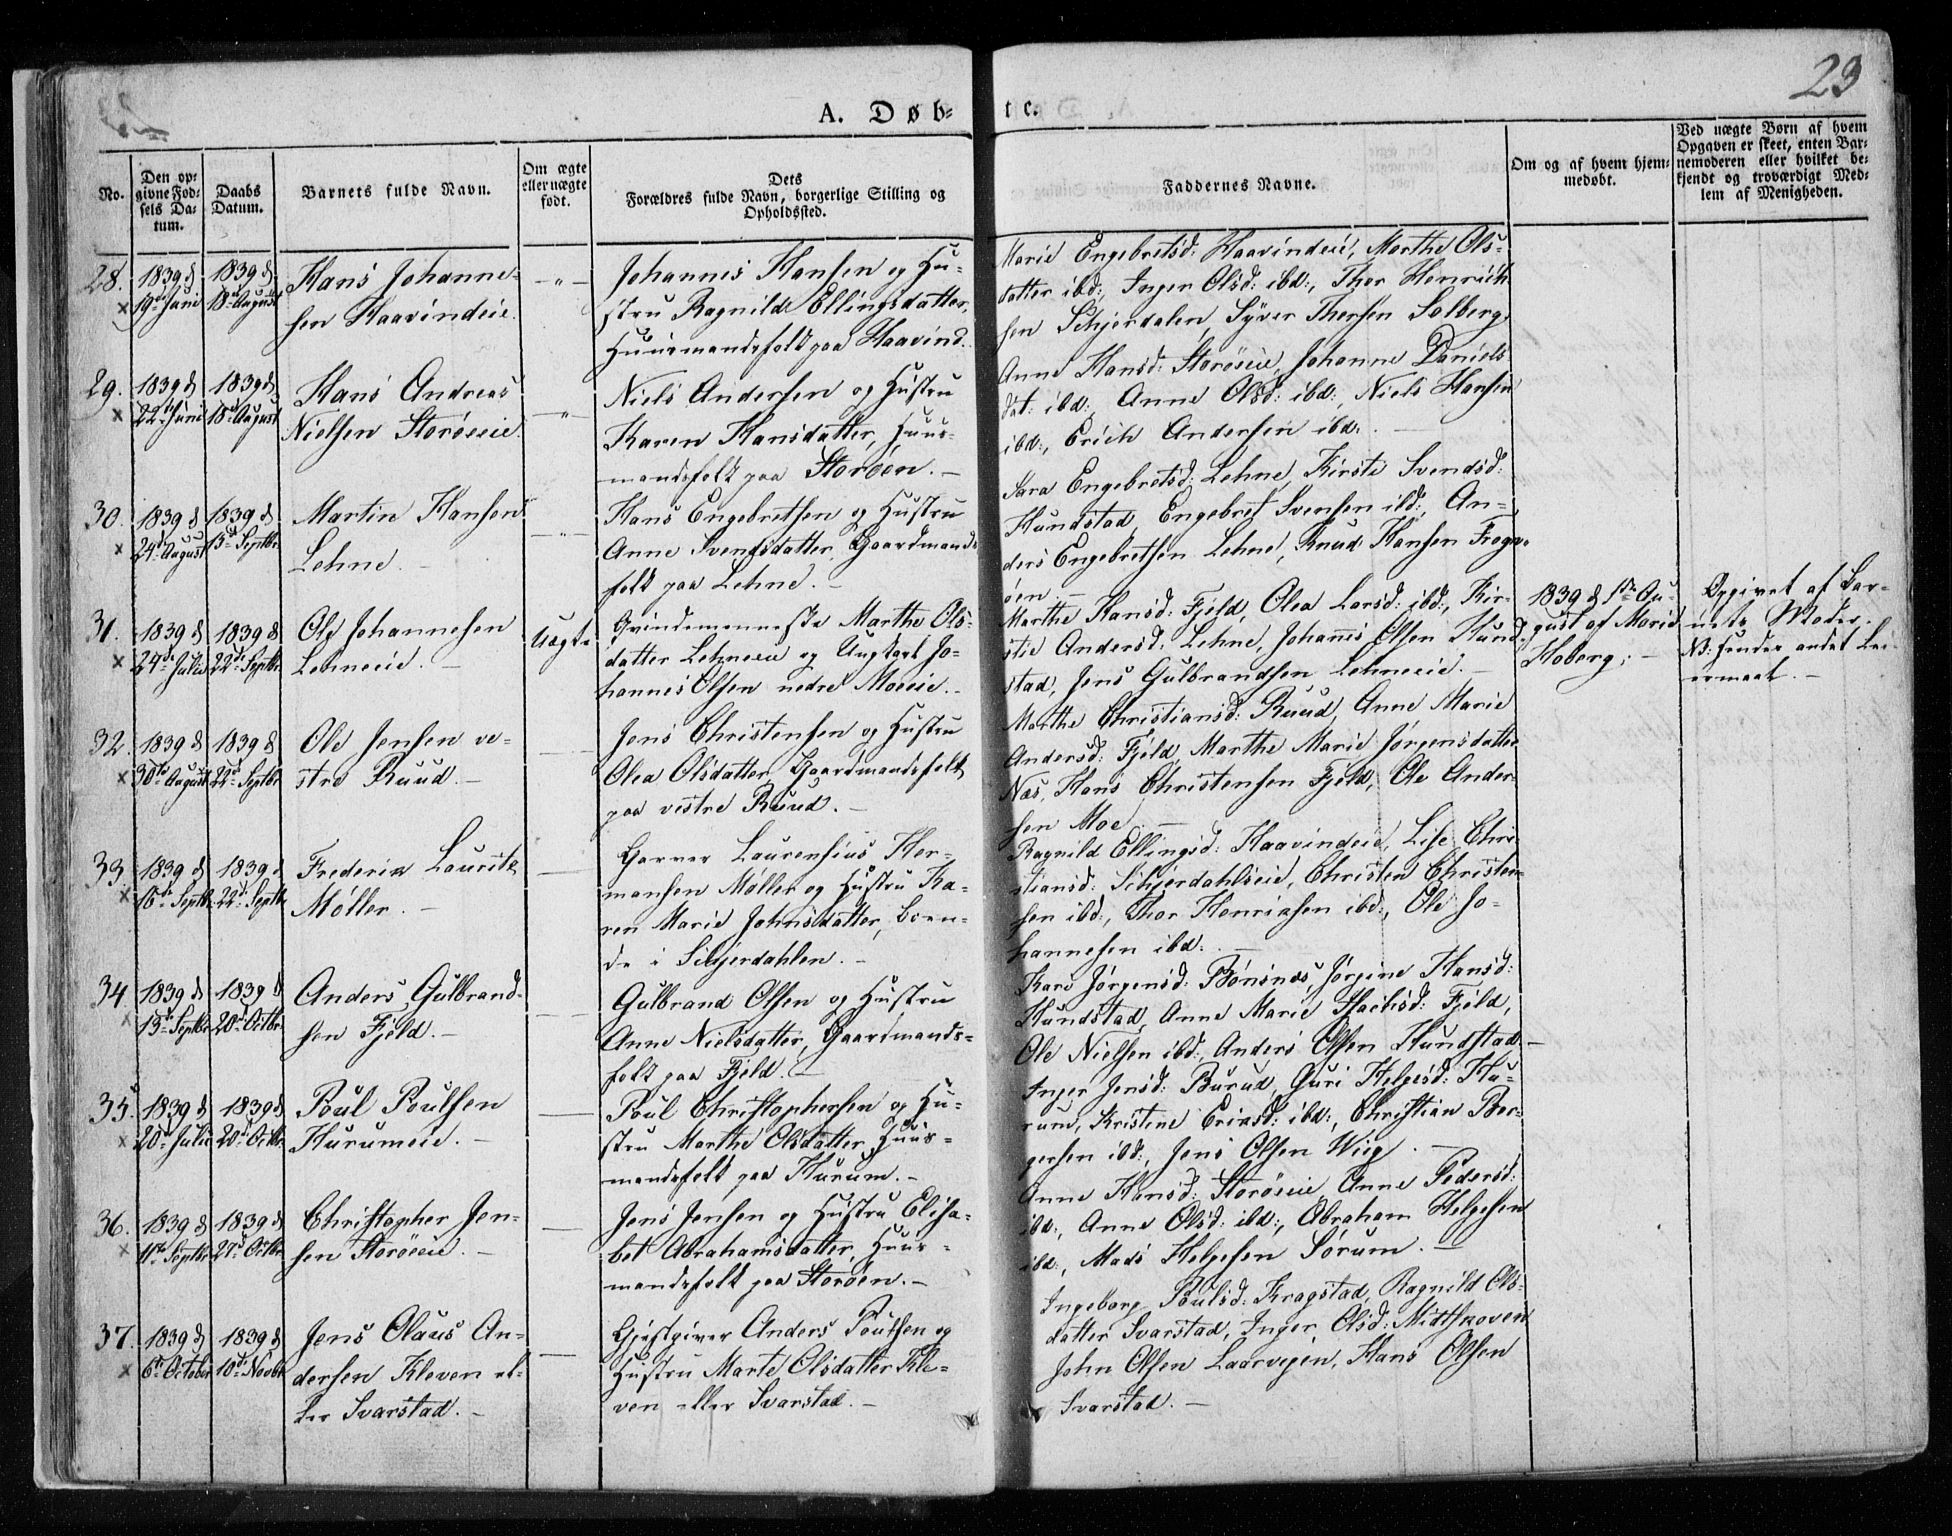 23
A. Døb-
te.
No.
Den op-
givne Fød-
sels Da-
tum.
Daabs
Datum.
Barnets fulde Navn.
Om ægte
eller uægte
født.
Dets
Forældres fulde Navn, borgerlige Stilling og
Opholdssted.
Faddernes Navne.
Om og af hvem hjem-
medøbt.
Ved uægte Børn af hvem
Opgaven er skeet, enten Bar-
nemoderen eller hvilket be-
kjendt og troværdigt Med-
lem af Menigheden.
28.
×
1839 d
19de Juni
1839 d
18de August
Hans Johanne-
sen Haavindeie.
-"-
Johannes Hansen og Hu-
stru Ragnild Ellingsdatter,
Huusmandsfolk paa Haavind.
Marie Engebretsd: Haavindeie, Marthe Ols-
datter ibd:, Inger Olsd: ibd:, Thor Henrich-
sen Schjerdalen, Syver Thersen Solberg.
29.
×
1839 d
22de Juni
1839 d
18de August
Hans Andreas
Nielsen Storøeie.
-"-
Niels Andersen og Hustru
Karen Hansdatter, Huus-
mandsfolk paa Storøen. -
Anne Hansd: Storøeie, Johanne Daniels-
dat: ibd:, Anne Olsd: ibd:, Niels Hansen
ibd:, Erich Andersen ibd:. -
30.
×
1839 d
24de August
1839 d
15de Septbr
Martin Hansen
Lehne. -
-"-
Hans Engebretsen og Hustru
Anne Svendsdatter, Gaardmands-
folk paa Lehne. -
Sara Engebretsd: Lehne, Kirsti Svendsd:
Hundstad, Engebret Svensen ibd:, An-
ders Engebretsen Lehne, Knud Hansen Frogn-
øen. -
31.
×
1839 d
24de Julii
1839 d
22de Septbr
Ole Johannesen
Lehneeie. -
Uægte
Qvindemenneske Marthe Ols-
datter Lehneeie og Ungkarl Jo-
hannes Olsen nedre Moeeie. -
Marthe Hansd: Fjeld, Olea Larsd: ibd:, Kir-
stie Andersd: Lehne, Johannes Olsen Hund-
stad, Jens Gulbrandsen Lehneeie. -
1839 d 1ste Au-
gust af Marie
Hoberg. -
Opgivet af Bar-
nets Moder.
NB: hendes andet Lei-
ermaal. -
32.
×
1839 d
30te August
1839 d
22de Septbr
Ole Jensen ve-
stre Ruud. -
Jens Christensen og Hustru
Olea Olsdatter, Gaardmandsfolk
paa vestre Ruud. -
Marthe Christiansd: Ruud, Anne Marie
Andersd: Fjeld, Marthe Marie Jørgensdatter
Næs, Hans Christensen Fjeld, Ole Ander-
sen Moe. -
33.
×
1839 d
16de Septbr
1839 d
22de Septbr
Frederik Lauritz
Møller. -
Garver Laurensius Her-
mansen Møller og Hustru Ka-
ren Marie Johnsdatter, boen-
de i Schjerdahlen. -
Ragnild Ellingsd: Haavindeie, Lise Chri-
stiansd: Schjerdahlseie, Christen Christen-
sen ibd:, Thor Henriksen ibd:, Ole Jo-
hannesen ibd:. -
34.
×
1839 d
13de Septbr
1839 d
20de Octbr
Anders Gulbrand-
sen Fjeld. -
Gulbrand Olsen og Hustru
Anne Nielsdatter, Gaardmands-
folk paa Fjeld. -
Kari Jørgensd: Bønsnæs, Jørgine Hansd:
Hundstad, Anne Marie Jsachsd: Fjeld,
Ole Nielsen ibd:, Anders Olsen Hundstad. -
35.
×
1839 d
20de Julii
1839 d
20de Octbr
Poul Poulsen
Hurumeie. -
Poul Christophersen og Hu-
stru Marthe Olsdatter, Huus-
mandsfolk paa Hurum. -
Inger Jensd: Burud, Guri Helgesd: Hu-
rum, Kristine Eriksd: ibd:, Christian Bør-
gersen ibd:, Jens Olsen Wiig. -
36.
×
1839 d
11te Septbr
1839 d
27de Octbr
Christopher Jen-
sen Storøeie. -
Jens Jensen og Hustru Elisa-
bet Abrahamsdatter, Huus-
mandsfolk paa Storøen. -
Anne Hansd: Storøeie, Anne Pedersd:
ibd:, Anne Olsd: ibd:, Abraham Helgesen
ibd:, Mads Helgesen Sørum. -
37.
×
1839 d
6te October
1839 d
10de Novbr
Jens Olaus An-
dersen Kleven el-
ler Svarstad. -
Gjestgiver Anders Poulsen og
Hustru Marte Olsdatter Kle-
ven eller Svarstad. -
Ingeborg Poulsd: Kragstad, Ragnild Ols-
datter Svarstad, Inger Olsd: Midtskoven
John Olsen Laarvegen, Hans Olsen
Svarstad. -